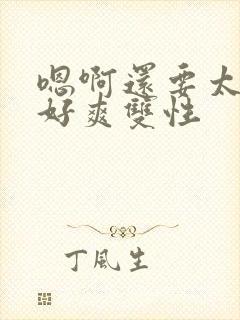 嗯啊還要太
好爽雙性
丁風生